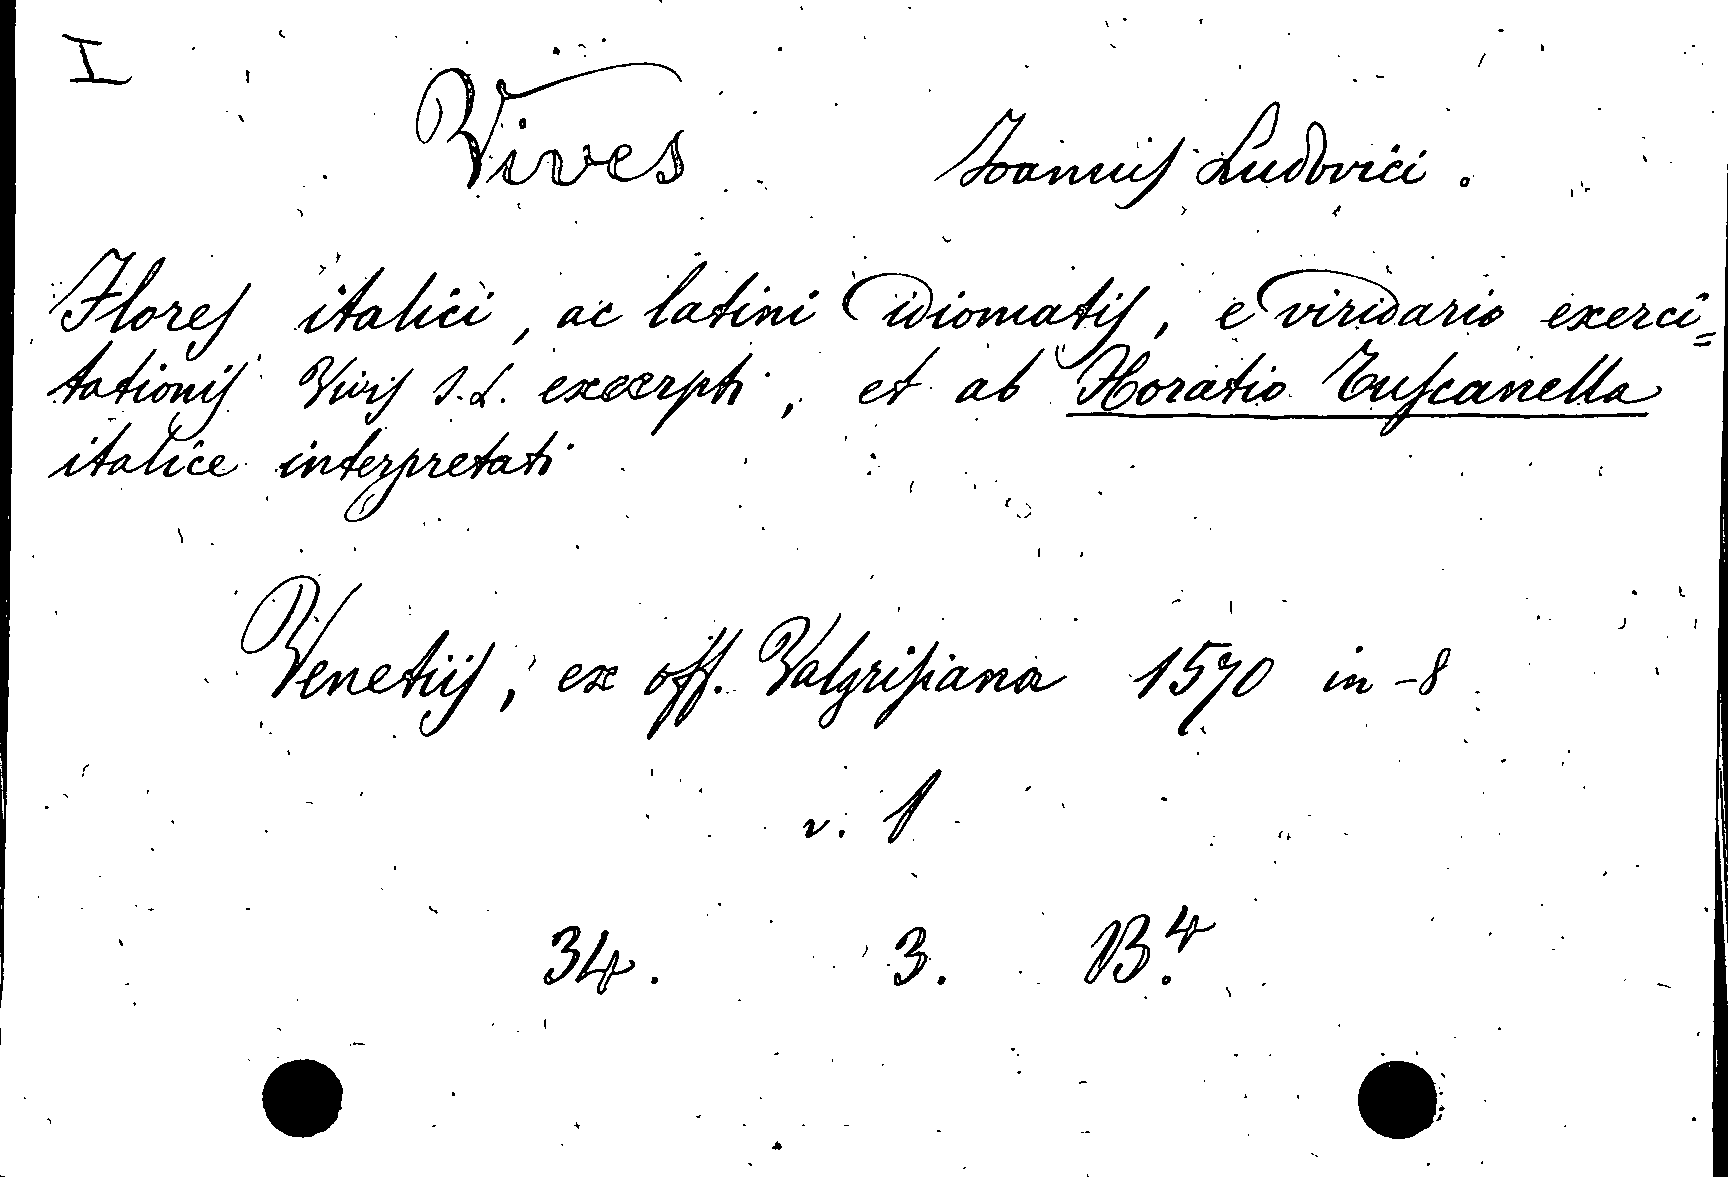 I
Vives Ioannis Ludovici.
Flores italici, ac latini idiomatis, e viridario exerci=
tationis Vivis I. L. excerpti, et ab Horatio Tuscanella
italice interpretati
Venetiis, ex off. Valgrisiana 1570 in-8
v. 1
34. 3. B.4